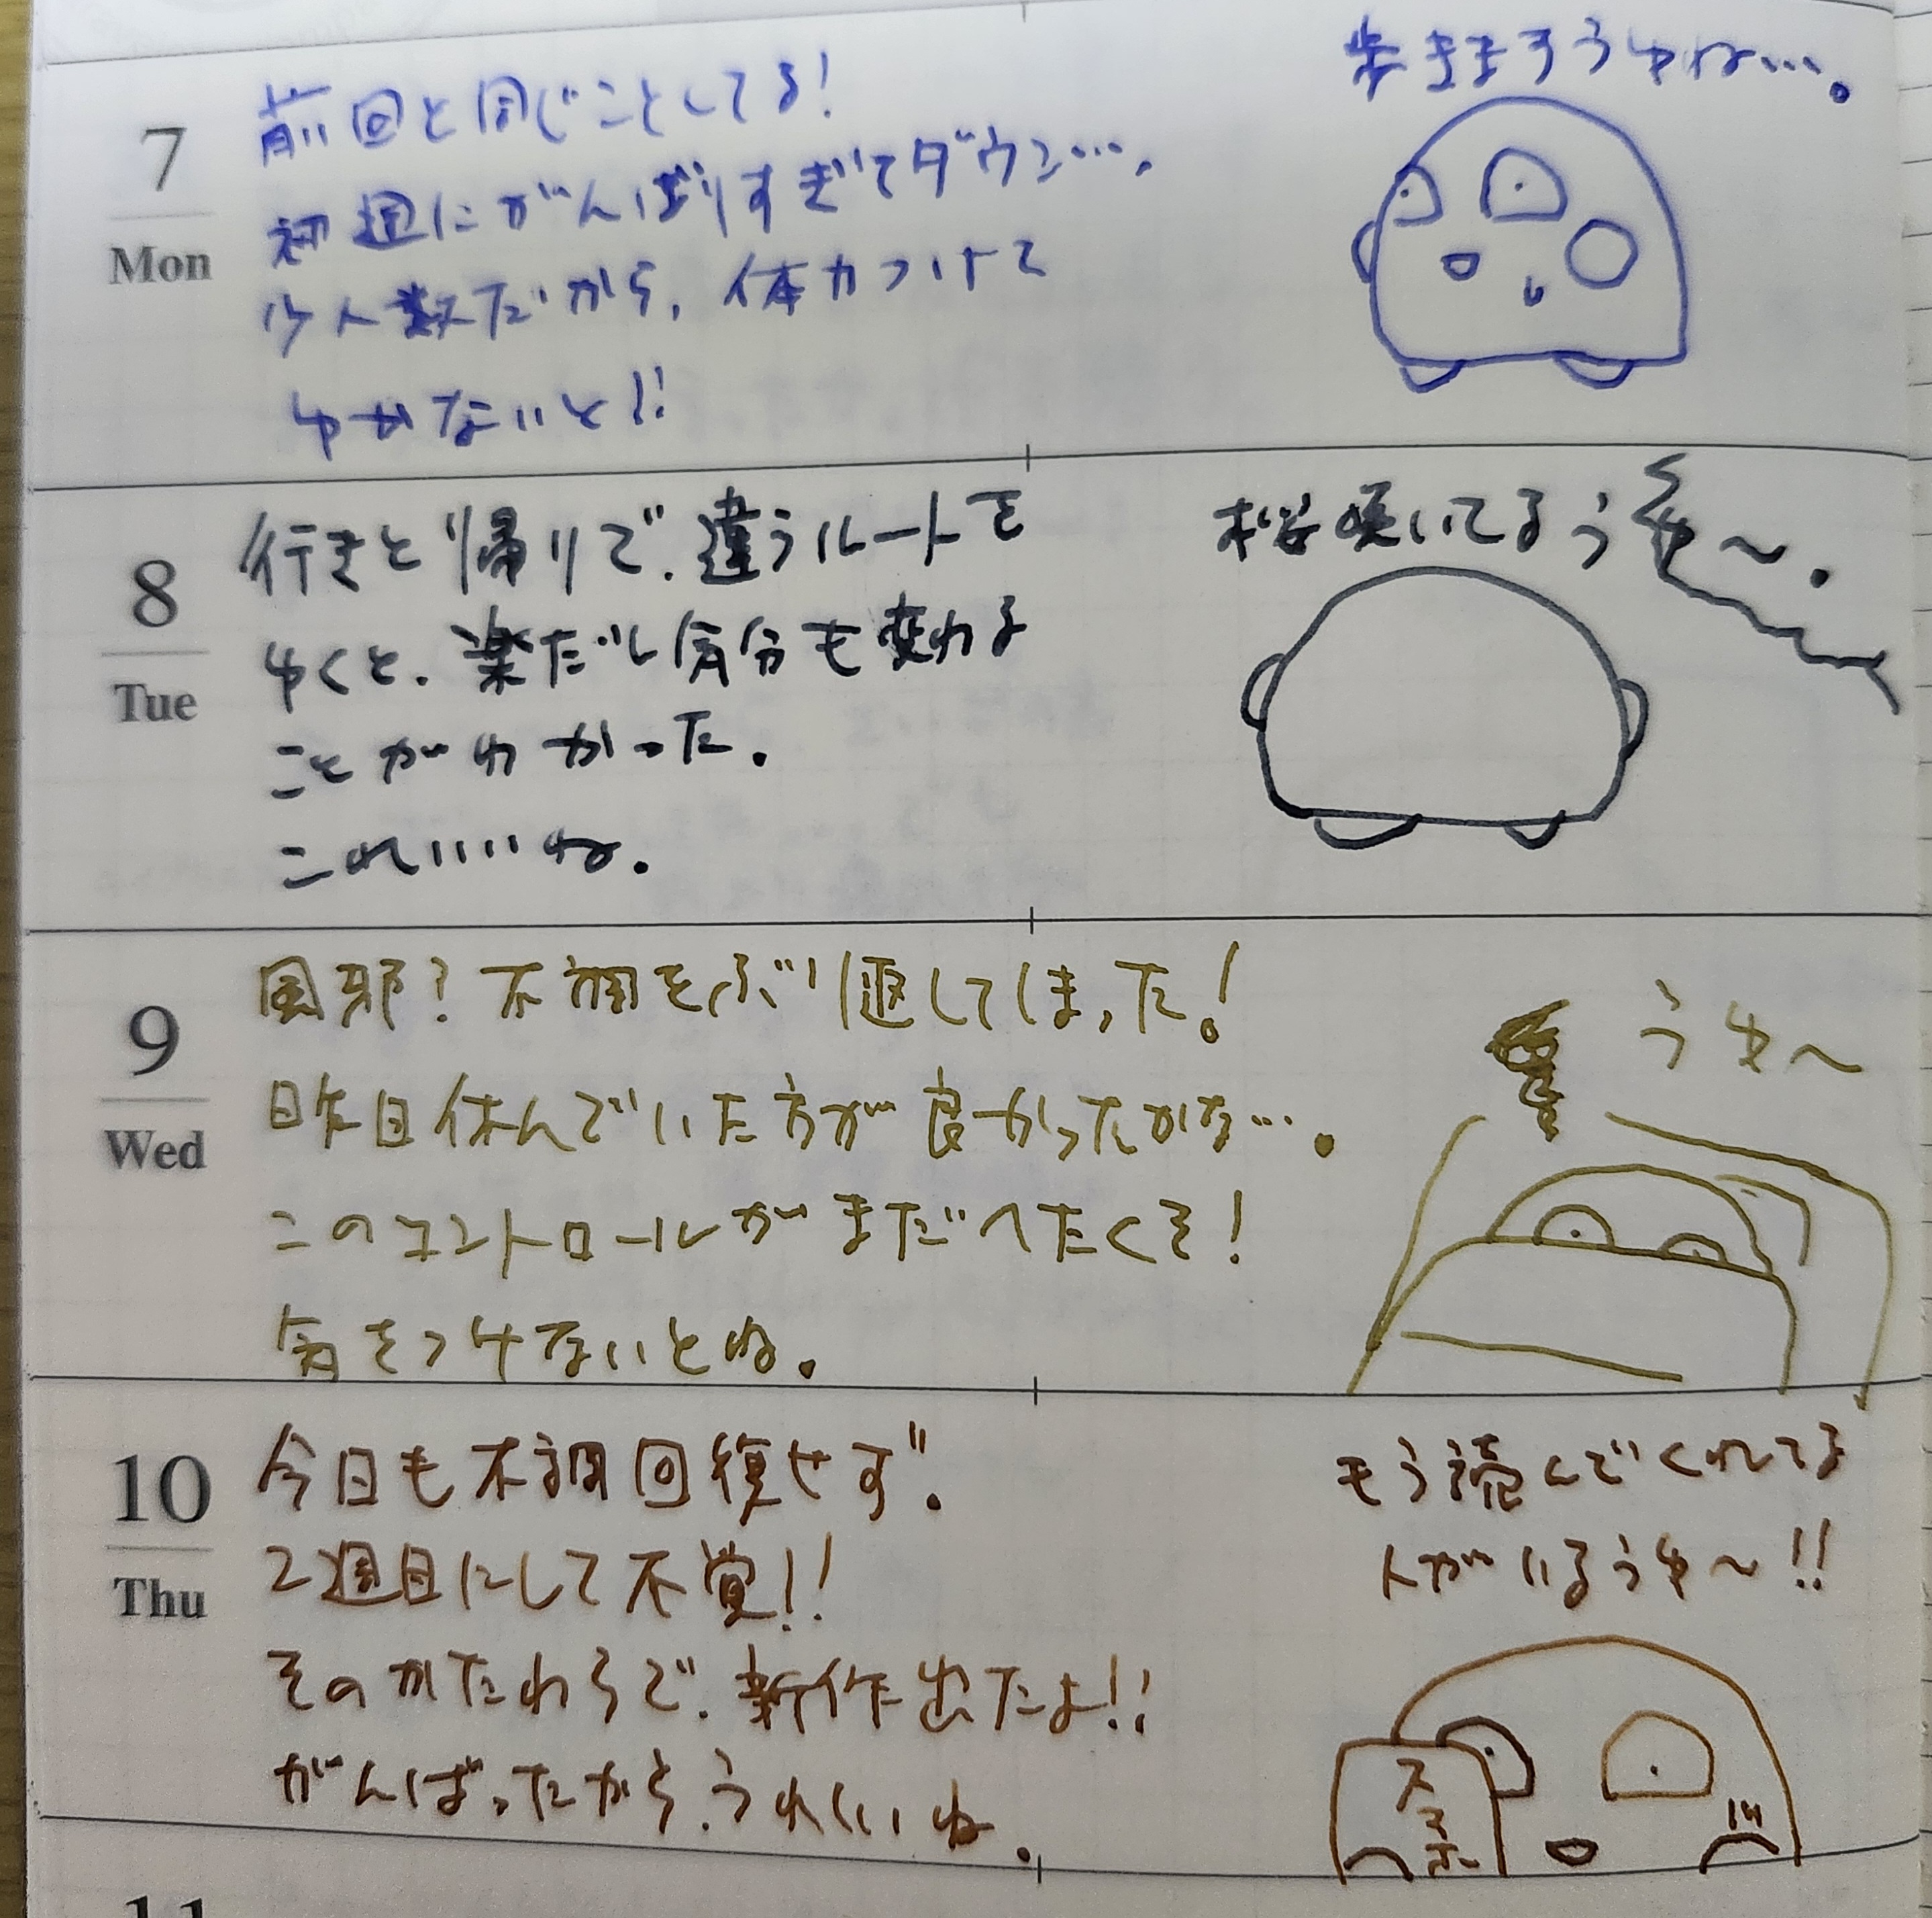 7
Mon
前回と同じことしてる!
初週にがんばりすぎてダウン…。
少人数だから、体力つけて
ゆかないと!!
歩きますうゆね…。
8
Tue
行きと帰りで、違うルートを
ゆくと、楽だし気分も変わる
ことがわかった。
これいいね。
桜咲いてるうゆ〜。
9
Wed
風邪?不調をぶり返してしまった!
昨日休んでいた方が良かったかな…。
このコントロールがまだへたくそ!
気をつけないとね。
うゆ〜
10
Thu
今日も不調回復せず。
2週目にして不覚!!
そのかたわらで、新作出たよ!!
がんばったから、うれしいね。
もう読んでくれてる
人がいるうゆ〜!!
スマホ
11